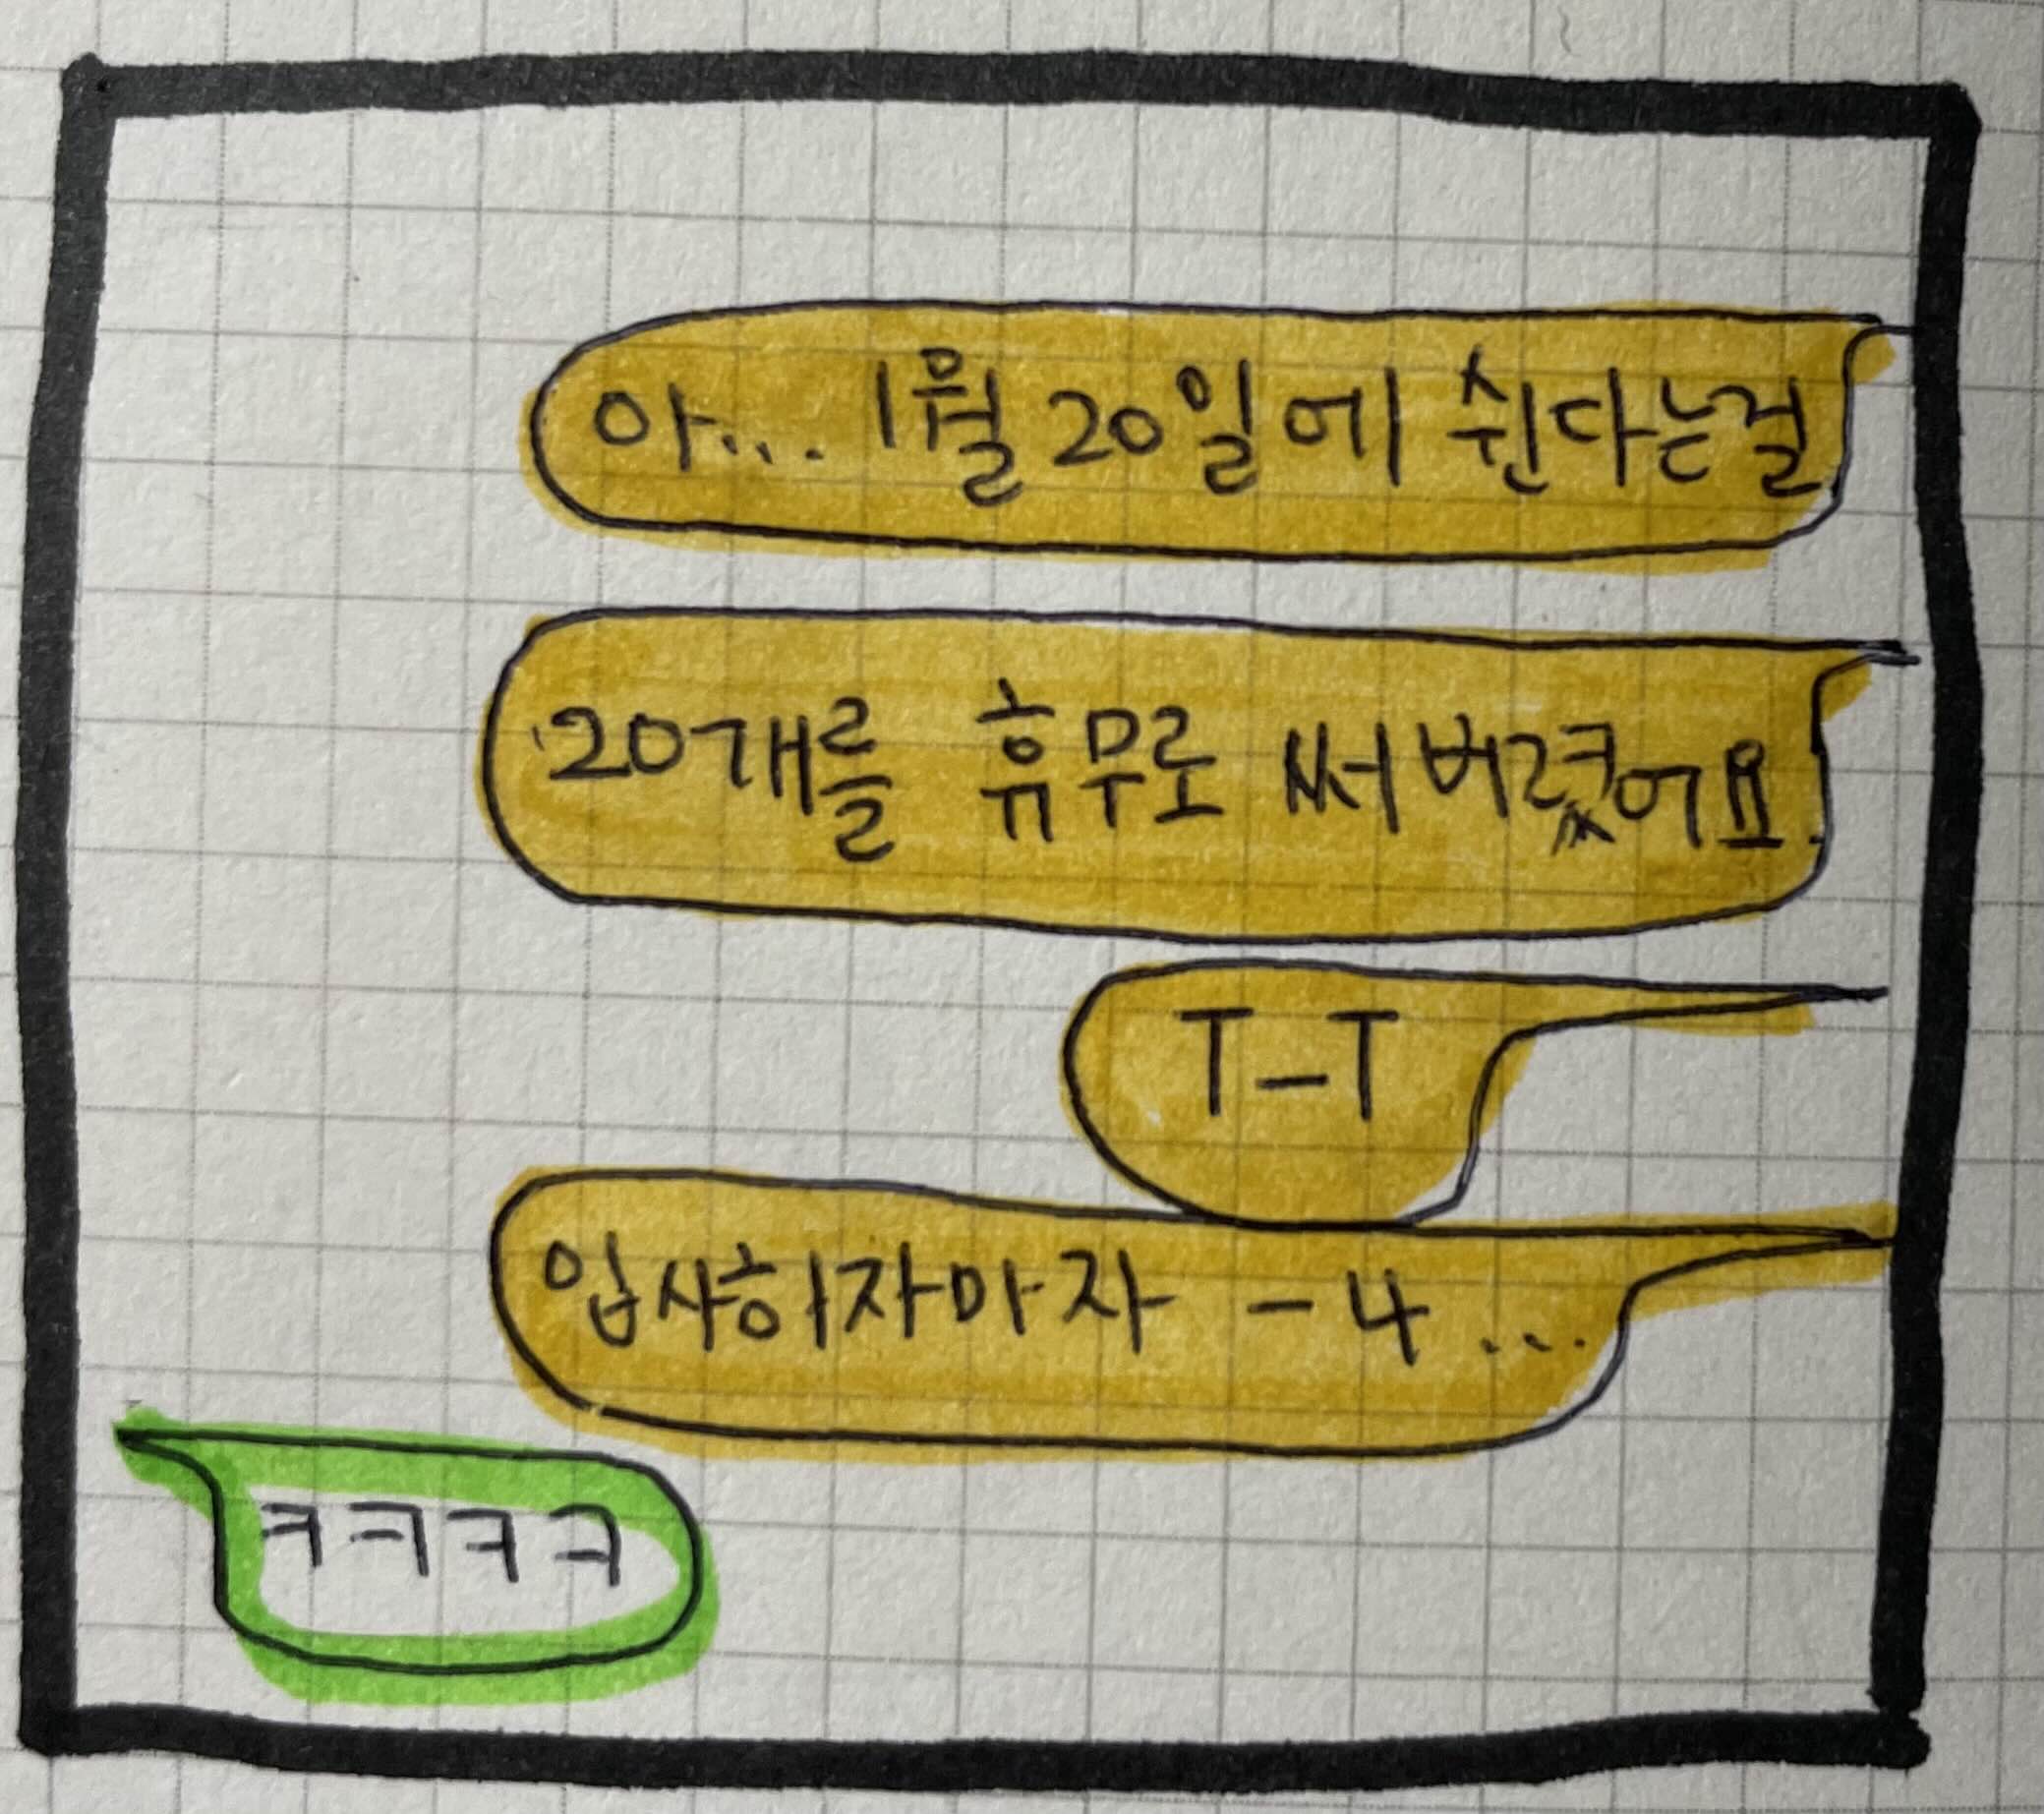 아... 1월 20일에 쉰다는걸
20개를 휴무로 써버렸어요.
T_T
입사하자마자 -4...
ㅋㅋㅋㅋ